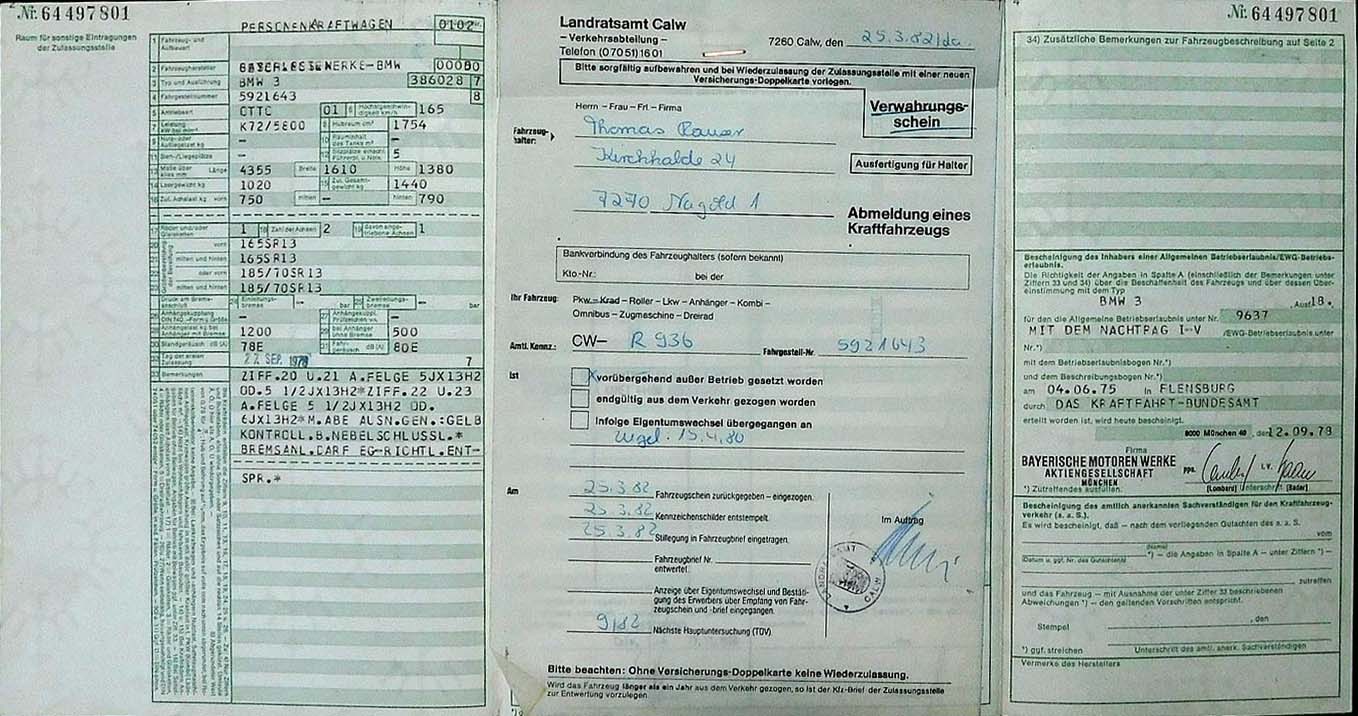 Nr. 64497801
Raum für sonstige Eintragungen
der Zulassungsstelle
PERSONENKRAFTWAGEN 0102
1 Fahrzeug- und
Aufbauart
2 Fahrzeughersteller BAYER.MOTORENWERKE-BMW 0000 0
3 Typ und Ausführung BMW 3 386028 7
4 Fahrgestellnummer 5921643 8
5 Antriebsart OTTO 01 6 Höchstgeschwin-
digkeit km/h 165
7 Leistung
kW bei min K72/5800 8 Hubraum cm³ 1754
9 Nutz- oder
Aufliegelast kg – 10 Rauminhalt
des Tanks m³ –
11 Steh-/Liegeplätze – 12 Sitzplätze einschl.
Führerpl. u. Nots. 5
13 Maße über
alles mm Länge 4355 Breite 1610 Höhe 1380
14 Leergewicht kg 1020 15 Zul. Gesamt-
gewicht kg 1440
16 Zul. Achslast kg vorn 750 mitten – hinten 790
17 Räder und/oder
Gleisketten 1 18 Zahl der Achsen 2 19 davon ange-
triebene Achsen 1
20 vorn 165SR13
21 mitten und hinten 165SR13
22 oder vorn 185/70SR13
23 mitten und hinten 185/70SR13
Größenbezeichnung der Bereifung
Druck am Brems-
anschluß 24 Einleitungs-
bremse – bar 25 Zweileitungs-
bremse – bar
26 Anhängerkupplung
DIN 740.. –Form u. Größe – 27 Anhängerkuppl.
Prüfzeichen –
28 Anhängelast kg bei
Anhänger mit Bremse 1200 29 bei Anhänger
ohne Bremse 500
30 Standgeräusch dB (A) 78E 31 Fahr-
geräusch dB (A) 80E
32 Tag der ersten
Zulassung 22. SEP. 1978 7
33 Bemerkungen ZIFF.20 U.21 A.FELGE 5JX13H2
OD.5 1/2JX13H2*ZIFF.22 U.23
A.FELGE 5 1/2JX13H2 OD.
6JX13H2*M.ABE AUSN.GEN.:GELB
KONTROLL.B.NEBELSCHLUSSL.*
BREMSANL.DARF EG-RICHTL.ENT-
SPR.*
Landratsamt Calw
– Verkehrsabteilung –
Telefon (0 70 51) 16 01
7260 Calw, den 25.3.82/da.
Bitte sorgfältig aufbewahren und bei Wiederzulassung der Zulassungsstelle mit einer neuen
Versicherungs-Doppelkarte vorlegen.
Verwahrungs-
schein
Herrn – Frau – Frl – Firma
Fahrzeug-
halter: Thomas Rauser
Kirchhalde 24
7270 Nagold 1
Ausfertigung für Halter
Abmeldung eines
Kraftfahrzeugs
Bankverbindung des Fahrzeughalters (sofern bekannt)
Kto.-Nr.: bei der
Ihr Fahrzeug: Pkw – Krad – Roller – Lkw – Anhänger – Kombi –
Omnibus – Zugmaschine – Dreirad
Amtl. Kennz.: CW– R 936 Fahrgestell-Nr. 5921643
ist
x vorübergehend außer Betrieb gesetzt worden
endgültig aus dem Verkehr gezogen worden
infolge Eigentumswechsel übergegangen an
15.4.80
Am
25.3.82 Fahrzeugschein zurückgegeben – eingezogen.
25.3.82 Kennzeichenschilder entstempelt.
25.3.82 Stillegung in Fahrzeugbrief eingetragen.
Im Auftrag
Fahrzeugbrief Nr.
entwertet.
Anzeige über Eigentumswechsel und Bestäti-
gung des Erwerbers über Empfang von Fahr-
zeugschein und -brief eingegangen.
9/82 Nächste Hauptuntersuchung (TÜV).
LANDRATSAMT CALW
Bitte beachten: Ohne Versicherungs-Doppelkarte keine Wiederzulassung.
Wird das Fahrzeug länger als ein Jahr aus dem Verkehr gezogen, so ist der Kfz-Brief der Zulassungsstelle
zur Entwertung vorzulegen.
Nr. 64497801
34) Zusätzliche Bemerkungen zur Fahrzeugbeschreibung auf Seite 2
Bescheinigung des Inhabers einer Allgemeinen Betriebserlaubnis/EWG-Betriebs-
erlaubnis.
Die Richtigkeit der Angaben in Spalte A (einschließlich der Bemerkungen unter
Ziffern 33 und 34) über die Beschaffenheit des Fahrzeugs und über dessen Über-
einstimmung mit dem Typ
BMW 3 , Ausf. 18.
für den die Allgemeine Betriebserlaubnis unter Nr. 9637
MIT DEM NACHTRAG I-V /EWG-Betriebserlaubnis unter
Nr.*)
mit dem Betriebserlaubnisbogen Nr.*)
und dem Beschreibungsbogen Nr.*)
am 04.06.75 in FLENSBURG
durch DAS KRAFTFAHRT-BUNDESAMT
erteilt worden ist, wird heute bescheinigt.
8000 München 40 , den 12.09.78
Firma
BAYERISCHE MOTOREN WERKE
AKTIENGESELLSCHAFT
MÜNCHEN
ppa. i.V.
*) Zutreffendes ausfüllen. (Lombard) Unterschrift (Bader)
Bescheinigung des amtlich anerkannten Sachverständigen für den Kraftfahrzeug-
verkehr (a. a. S.).
Es wird bescheinigt, daß – nach dem vorliegenden Gutachten des a. a. S.
vom
(Name)
*) – die Angaben in Spalte A – unter Ziffern *) –
(Datum u. ggf. Nr. des Gutachtens)
zutreffen
und das Fahrzeug – mit Ausnahme der unter Ziffer 33 beschriebenen
Abweichungen *) – den geltenden Vorschriften entspricht.
, den
Stempel
*) ggf. streichen Unterschrift des amtl. anerk. Sachverständigen
Vermerke des Herstellers